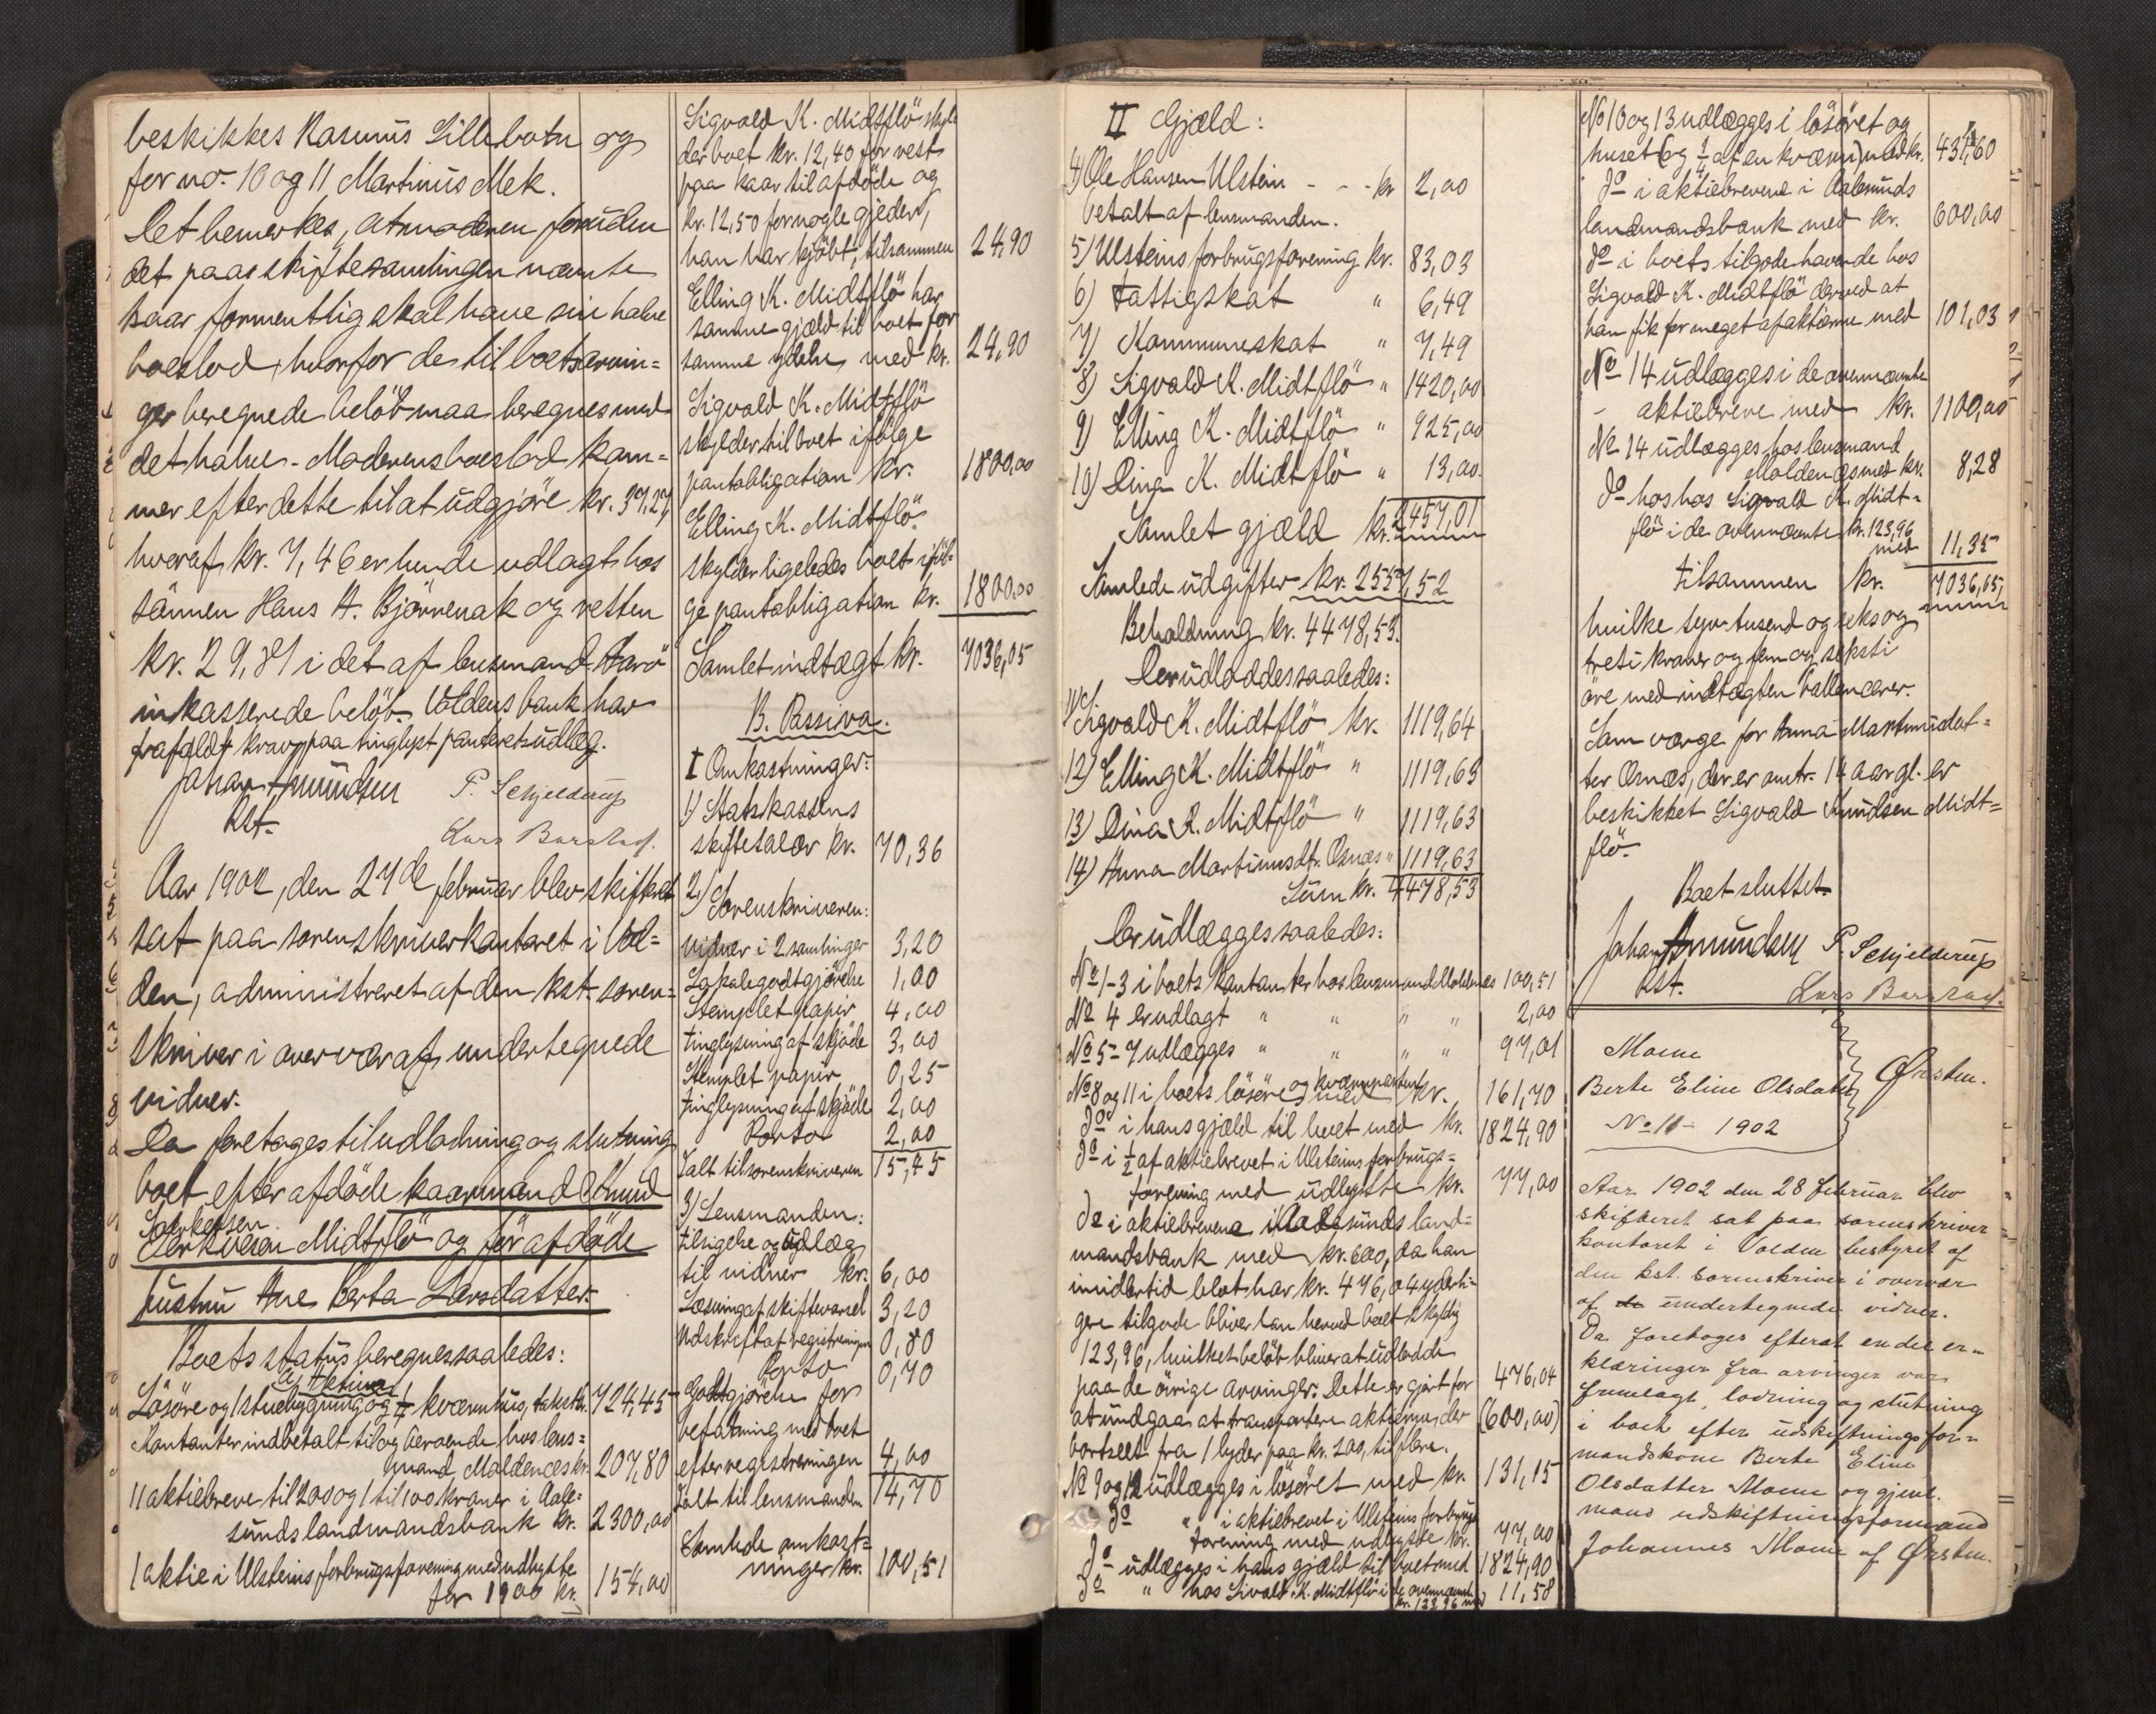 beskikkes Rasmus Lillebotn og
for no. 10 og 11 Martinus Mek.
Det bemerkes, at moderen foruden
det paa skiftesamlingen nævnte
kaar formentlig skal have sin halve
boeslod, hvorfor de til boets arvin=
ger beregnede beløb maa beregnes med
det halve. Moderens boeslod kom=
mer efter dette til at udgjøre kr. 37,27,
hvoraf kr. 7,46 er hende udlagt hos
sønnen Hans A. Bjørnenak og resten
kr. 29,81 i det af lensmand Aarø
inkasserede beløb. Voldens bank har
frafaldt krav paa tinglyst panteretsudlæg.
Johan Amundsen P. Schjelderup
kst.
Lars Barstad.
Aar 1902, den 27de februar blev skifteret
sat paa sorenskriverkontoret i Vol=
den, administreret af den kst. soren=
skriver i overvær af undertegnede
vidner.
Da foretoges til udlodning og slutning
boet efter afdøde kaarmand Knud
Sjurketsen
Midtflø og før afdøde
hustru Ane Berta Larsdatter.
Boets status beregnes saaledes:
A. Aktiva
Løsøre og 1 stuebygning og 1/4 kværnhus, takst kr. 724,45
Kontanter indbetalt til og beroende hos lens=
mand Moldenæs kr. 207,80
11 aktiebreve til 200 og 1 til 100 kroner i Aale=
sunds landmandsbank kr. 2300,00
1 aktie i Ulsteins forbrugsforening med udbytte
for 1900 kr. 154,00
Sigvald K. Midtflø skyl
der boet kr. 12,40 for rest
paa kaar til afdøde og
kr. 12,50 for nogle gjeder,
han har kjøbt, tilsammen 24,90
Elling K. Midtflø har
samme gjæld til boet for
samme ydelse med kr. 24,90
Sigvald K. Midtflø
skylder til boet ifølge
pantobligation kr. 1800,00
Elling K. Midtflø
skylder ligeledes boet iføl=
ge pantobligation kr. 1800,00
Samlet indtægt kr. 7036,05
B. Passiva.
I Omkostninger:
1) Statskassens
skiftetaler kr. 70,36
2) Sorenskriveren:
vidner i 2 samlinger 3,20
Lokalegodtgjørelse 1,00
Stemplet papir 4,00
tinglysning af skjøde 3,00
Stemplet papir 0,25
tinglysning af skjøde 2,00
Porto 2,00
Ialt til sorenskriveren 15,45
3) Lensmanden:
tilsigelse og udlæg
til vidner kr. 6,00
Læsning af skiftevarsel 3,20
Udskrift af registreringen 0,80
Porto 0,70
Godtgjørelse for
befatning med boet
efter registreringen 4,00
Ialt til lensmanden 14,70
Samlede omkost=
ninger kr. 100,51
II Gjæld:
4) Ole Hansen Ulstein - - - kr 2,00
betalt af lensmanden.
5) Ulsteins forbrugsforening kr. 83,03
6) Fattigskat " 6,49
7) Kommuneskat " 7,49
8) Sigvald K. Midtflø " 1420,00
9) Elling K. Midtflø " 925,00
10) Dina K. Midtflø " 13,00
Samlet gjæld kr. 2457,01
Samlede udgifter kr. 2557,52
Beholdning kr. 4478,53.
Der udloddes saaledes:
11) Sigvald K. Midtflø kr. 1119,64
12) Elling K. Midtflø " 1119,63
13) Dina K. Midtflø " 1119,63
14) Anna Martinusdtr. Osnæs " 1119,63
Sum kr. 4478,53
Der udlægges saaledes:
No 1-3 i boets kontanter hos lensmand Moldenæs 100,51
No 4 er udlagt " " " " 2,00
No 5-7 udlægges " " " " 97,01
No 8 og 11 i boets løsøre og kværnpart med kr. 161,70
do i hans gjæld til boet med kr. 1824,90
do i 1/2 af aktiebrevet i Ulsteins forbrugs=
forening med udbytte kr. 77,00
do i aktiebrevene i Aalesunds land=
mandsbank med kr. 600, da han
imidlertid blot har kr. 476,04 yderli=
gere tilgode bliver han herved boet skyldig
123,96, hvilket beløb bliver at udlodde
paa de øvrige arvinger. Dette er gjort for 476,04
at undgaa at transportere aktierne, der (600,00)
bortseet fra 1 lyder paa kr. 200, til flere.
No 9 og 12 udlægges i løsøret med kr. 131,15
do " i aktiebrevet i Ulsteins forbrugs
forening med udbytte kr. 77,00
do udlægges i hans gjæld til boet med 1824,90
do " hos Sivald K. Midtflø i de ovennævnte
kr. 123,96 med 11,58
No 10 og 13 udlægges i løsøret og
huset (og 1/4 af en kværn) med kr. 431,60
do i aktiebrevene i Aalesunds
landmandsbank med kr. 600,00
do i boets tilgodehavende hos
Sigvald K. Midtflø derved at
han fik for meget af aktierne med 101,03
No 14 udlægges i de ovennævnte
aktiebreve med kr. 1100,00
No 14 udlægges hos lensmand
Moldenæs med kr. 8,28
do hos hos Sigvald K. Midt=
flø i de ovennævnte kr. 123,96
med 11,35
tilsammen kr. 7036,05,
hvilke syv tusend og seks og
treti kroner og fem og seksti
øre med indtægten ballancerer.
Som værge for Anna Martinusdat=
ter Osnæs, der er omtr. 14 aar gl. er
beskikket Sigvald Knudsen Midt=
flø.
Boet sluttet.
Johan Amundsen P. Schjelderup
kst.
Lars Barstad.
Moene
Berte Eline Olsdatter Ørsten.
No 11 - 1902
Aar 1902 den 28 februar blev
skifteret sat paa sorenskriver=
kontoret i Volden bestyret af
den kst. sorenskriver i overvær
af de undertegnede vidner.
Da foretoges efterat en del er=
klæringer fra arvinger var
fremlagt, lodning og slutning
i boet efter udskiftningsfor=
mandskone Berte Eline
Olsdatter Moene og gjenl.
mand udskiftningsformand
Johannes Moene af Ørsten.